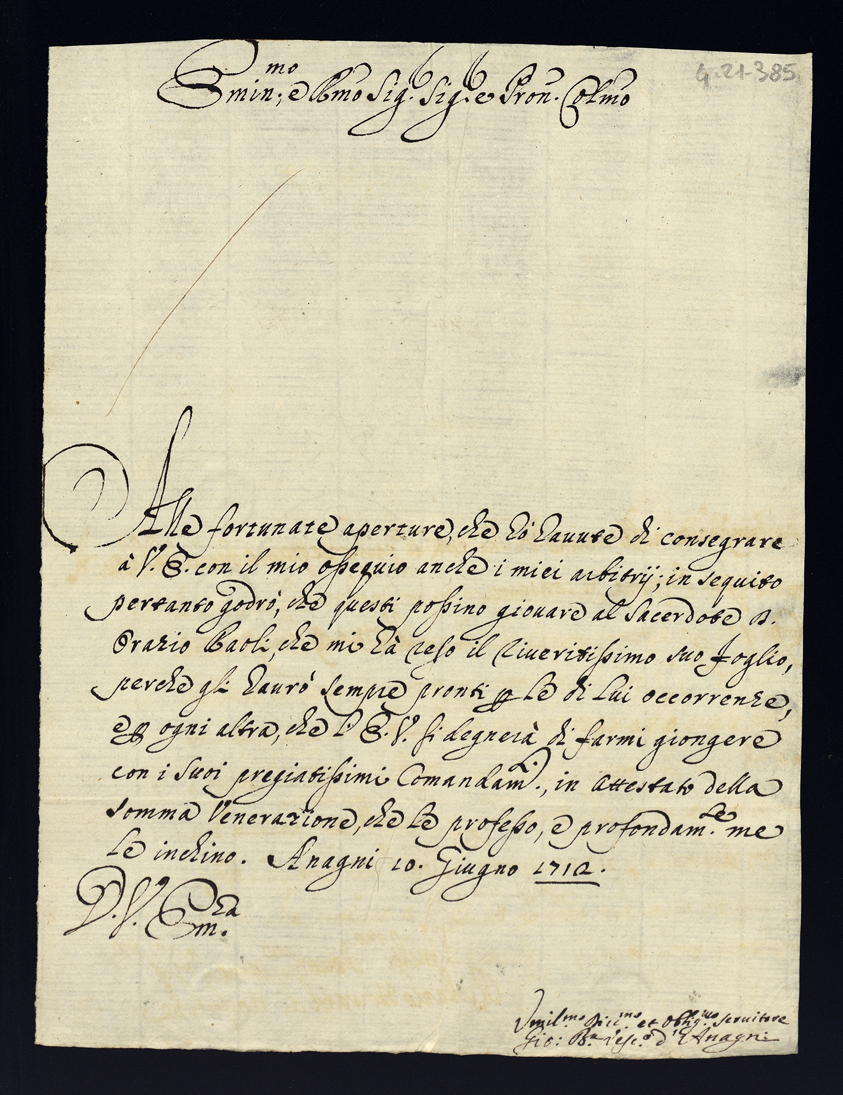 4-21-385
Emin:mo e Rmo Sig.r Sig.r e Pron. Colmo
Alle fortunate aperture, che hò havute di consegrare
à V. E. con il mio ossequio anche i miei arbitrÿ; in sequito
pertanto godrò, che questi possino giovare al Sacerdote D.
Orazio Paoli, che mi hà reso il riveritissimo suo foglio,
perche gli havrò sempre pronti p le di lui occorrenze,
e p ogni altra, che l'E. V. si degnerà di farmi giongere
con i suoi pregiatissimi Comandam.ti, in attestato della
somma Venerazione, che le professo, e profondam.te me
le inchino. Anagni 10. Giugno 1712.
D. V. Em.za
Vmil.mo et Oblig.mo servitore
Gio: B.a Vesc.o d'Anagni